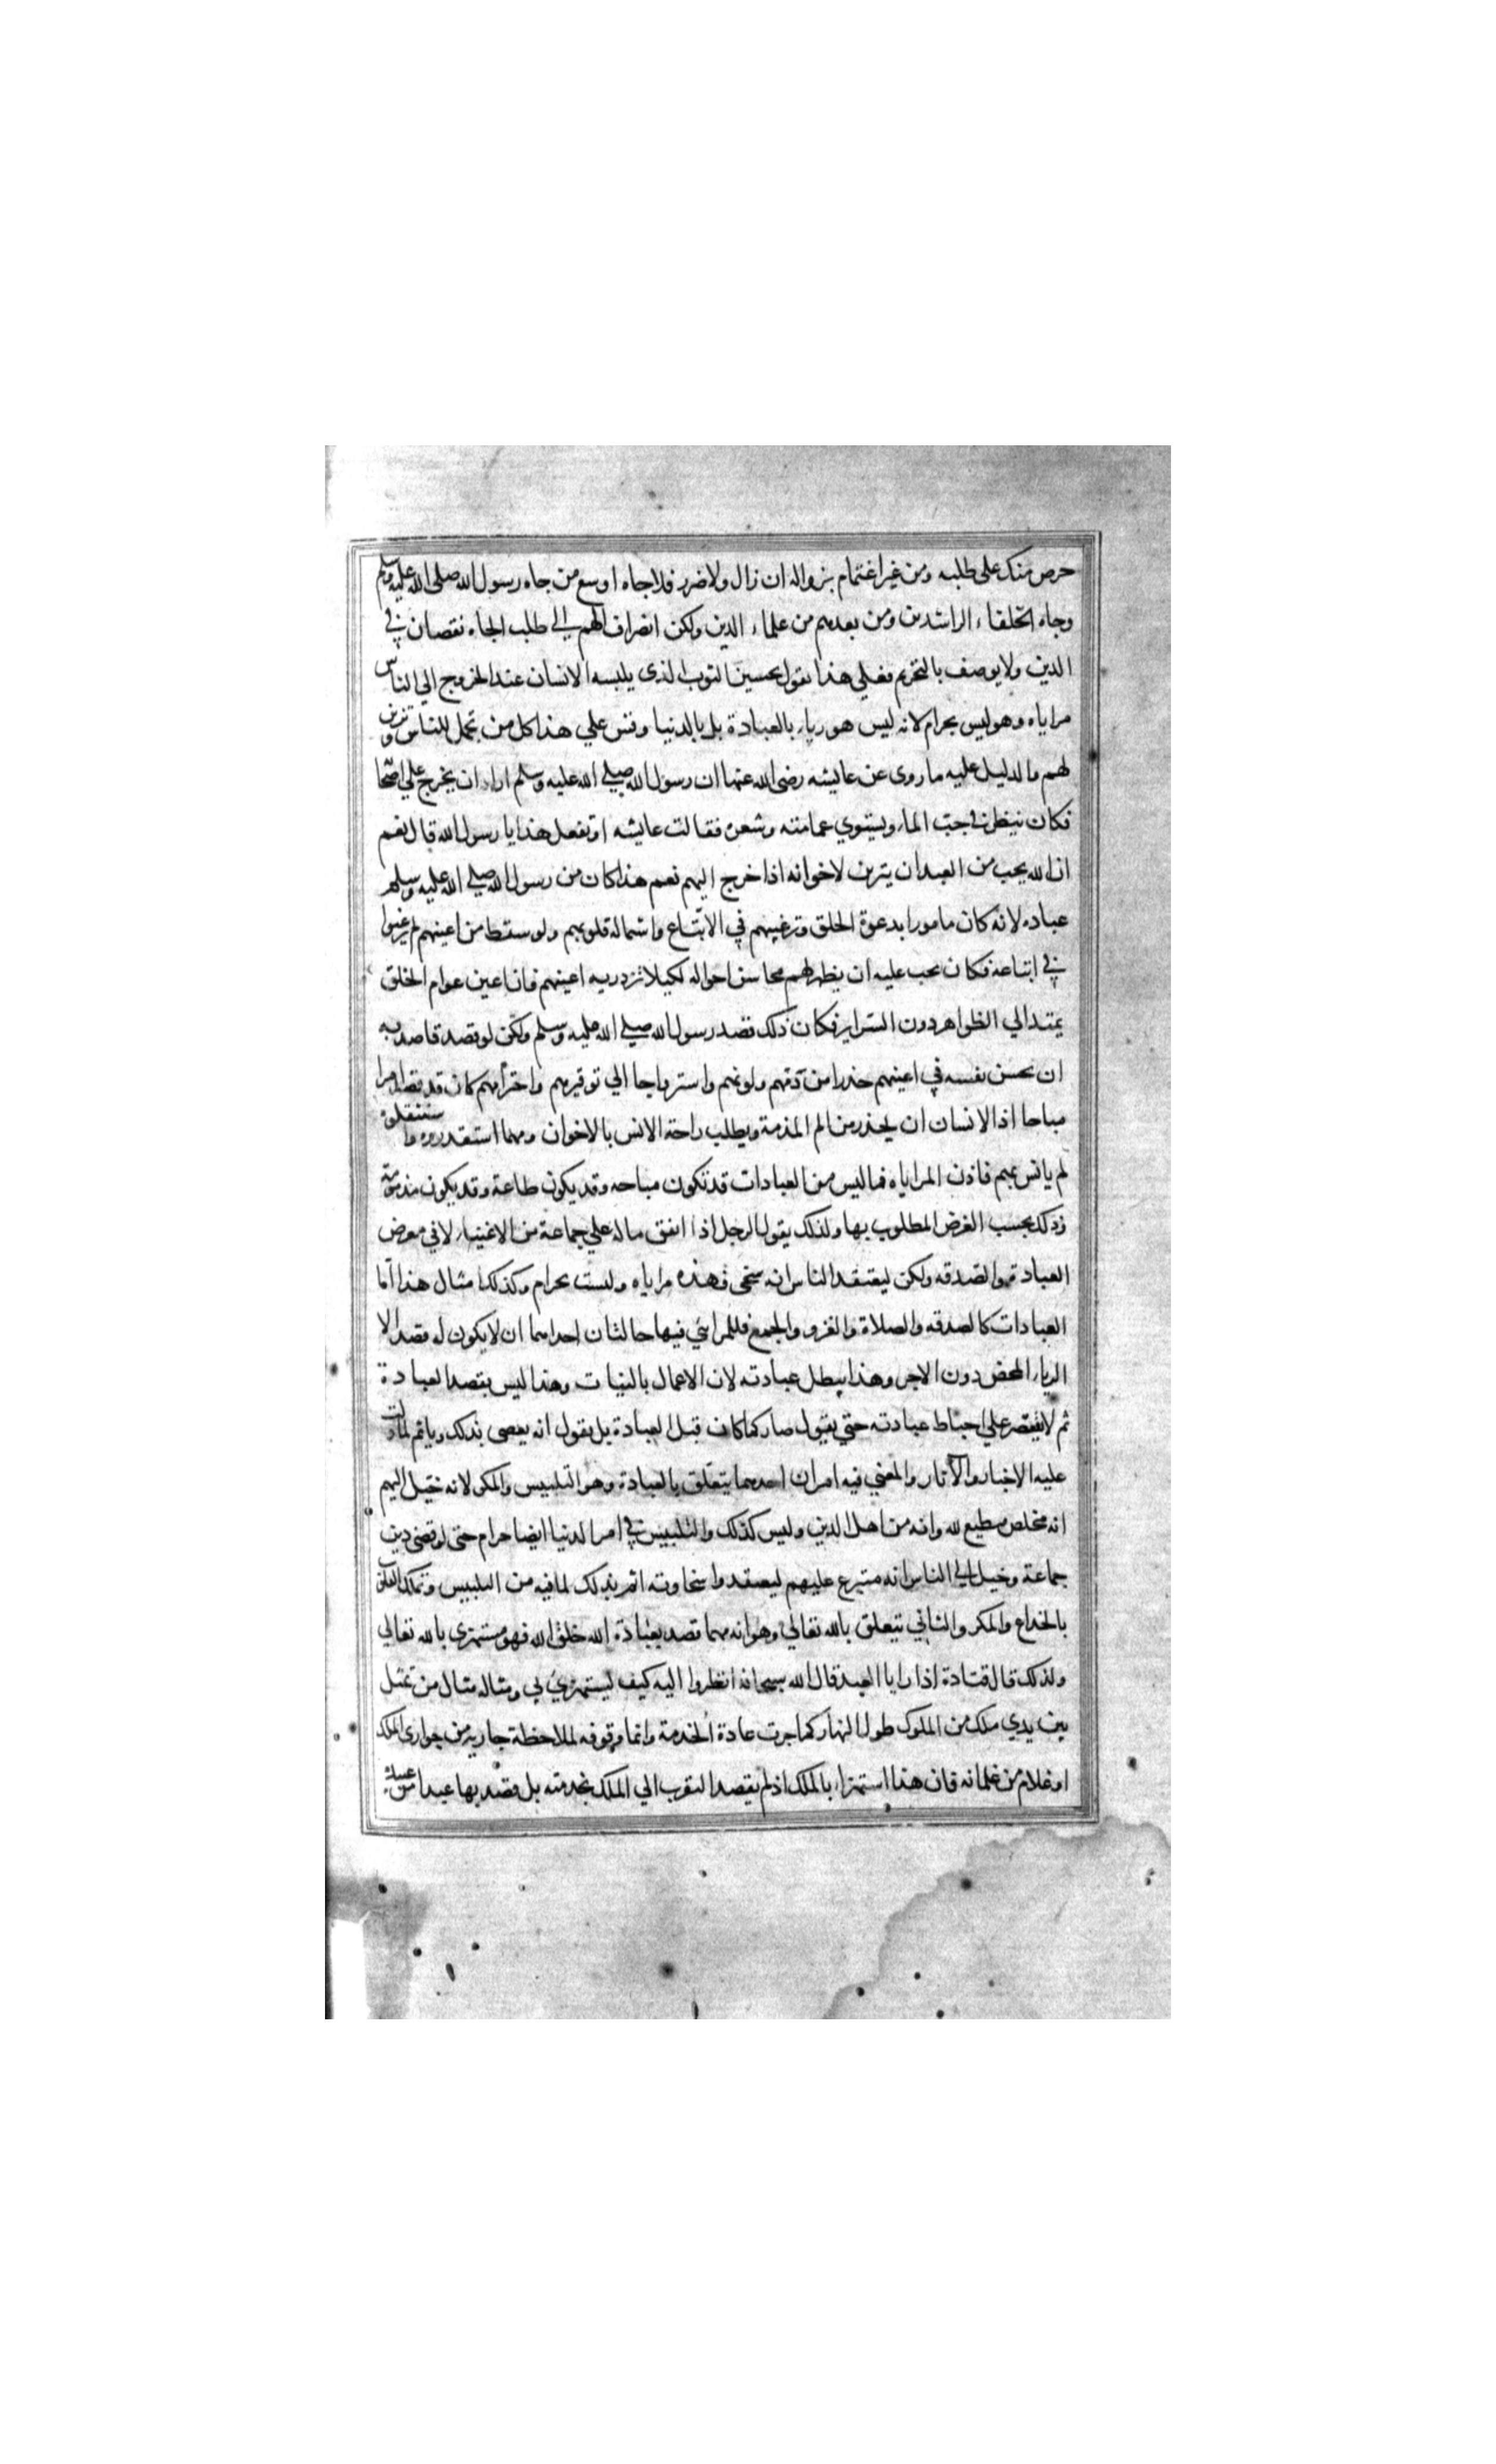 حرص منك على طلبه ومن غير اغتمام بزواله ان زال ولا ضرر فلا جاه اوسع من جاه رسول الله صلى الله عليه وسلم
وجاه الخلفاء الراشدين ومن بعدهم من علماء الدين ولكن انصراف الهم الي طلب الجاه نقصان في
الدين ولا يوصف بالتحريم فعلي هذا نقول تحسين الثوب الذى يلبسه الانسان عند الخروج الي الناس
مراياه وهو ليس بحرام لانه ليس هو رياء بالعبادة بل بالدنيا وقس علي هذا كل من تجمل للناس وتزين
لهم ما لدليل عليه ما روى عن عايشه رضى الله عنها ان رسول الله صلي الله عليه وسلم اراد ان يخرج علي اصحا
فكان ينظر في جب الماء ويستوي عمامته وشعره فقالت عايشه اوتفعل هذا يا رسول الله قال نعم
ان الله يحب من العبد ان يتزين لاخوانه اذا خرج اليهم نعم هذا كان من رسول الله صلي الله عليه وسلم
عباده لانه كان مامورا بدعوة الخلق وترغيبهم في الاتباع واشمالة قلوبهم ولو سقط من اعينهم لم يرغبوا
في اتباعه فكان يجب عليه ان يظهر لهم محاسن احواله لكيلا تزدريه اعينهم فان اعين عوام الخلق
يمتد الي الظواهر دون السراير فكان ذلك قصد رسول الله صلي الله عليه وسلم ولكن لو قصد قاصد به
ان يحسن نفسه في اعينهم حذرا من ذمهم ولومهم واسترواحا الي توقيرهم واحترامهم كان قد قصد امرا
مباحا اذ الانسان ان يحذر من الم المذمة ويطلب راحة الانس بالاخوان ومهما استقذروه
لم يانس بهم فاذن المراياه فما ليس من العبادات قد تكون مباحه وقد يكون طاعة وقد يكون مذمومة
وذلك بحسب الغرض المطلوب بها ولذلك يقول الرجل اذا انفق ماله علي جماعة من الاغنياء لا في معرض
العبادة والصدقه ولكن ليعتقد الناس انه سخى فهذه مراياه وليست بحرام وكذلك امثال هذا اما
العبادات كالصدقه والصلاة والغزو والجمع فللمرائي فيها حالتان احداهما ان لا يكون له قصد الا
الرياء المحض دون الاجر وهذا يبطل عبادته لان الاعمال بالنيات وهذا ليس بقصد العبادة
ثم لا نقتصر علي احباط عبادته حتي يقول صار كما كان قبل العبادة بل يقول انه يعصى بذلك وياثم لما دلت
عليه الاخبار والآثار والمعني فيه امران احدهما يتعلق بالعبادة وهو التلبيس والمكر لانه خيل اليهم
انه مخلص مطيع لله وانه من اهل الدين وليس كذلك والتلبيس في امر الدنيا ايضا حرام حتى لو قضى دين
جماعة وخيل الي الناس انه متبرع عليهم ليعتقدوا سخاوته اثم بذلك لما فيه من التلبيس وتملك القلوب
بالخداع والمكر والثاني يتعلق بالله تعالي وهو انه مهما قصد بعبادة الله خلق الله فهو مستهزى بالله تعالي
ولذلك قال قتادة اذا رايا العبد قال الله سبحانه انظروا اليه كيف يستهزئ بي ومثاله مثال من تمثل
بين يدي ملك من الملوك طول النهار كما جرت عادة الخدمة وانما وقوفه لملاحظة جاريه من جوارى الملك
او غلام من غلمانه فان هذا استهزاء بالملك اذ لم يقصد التقرب الي الملك بخدمته بل قصد بها عبدا من عبيده